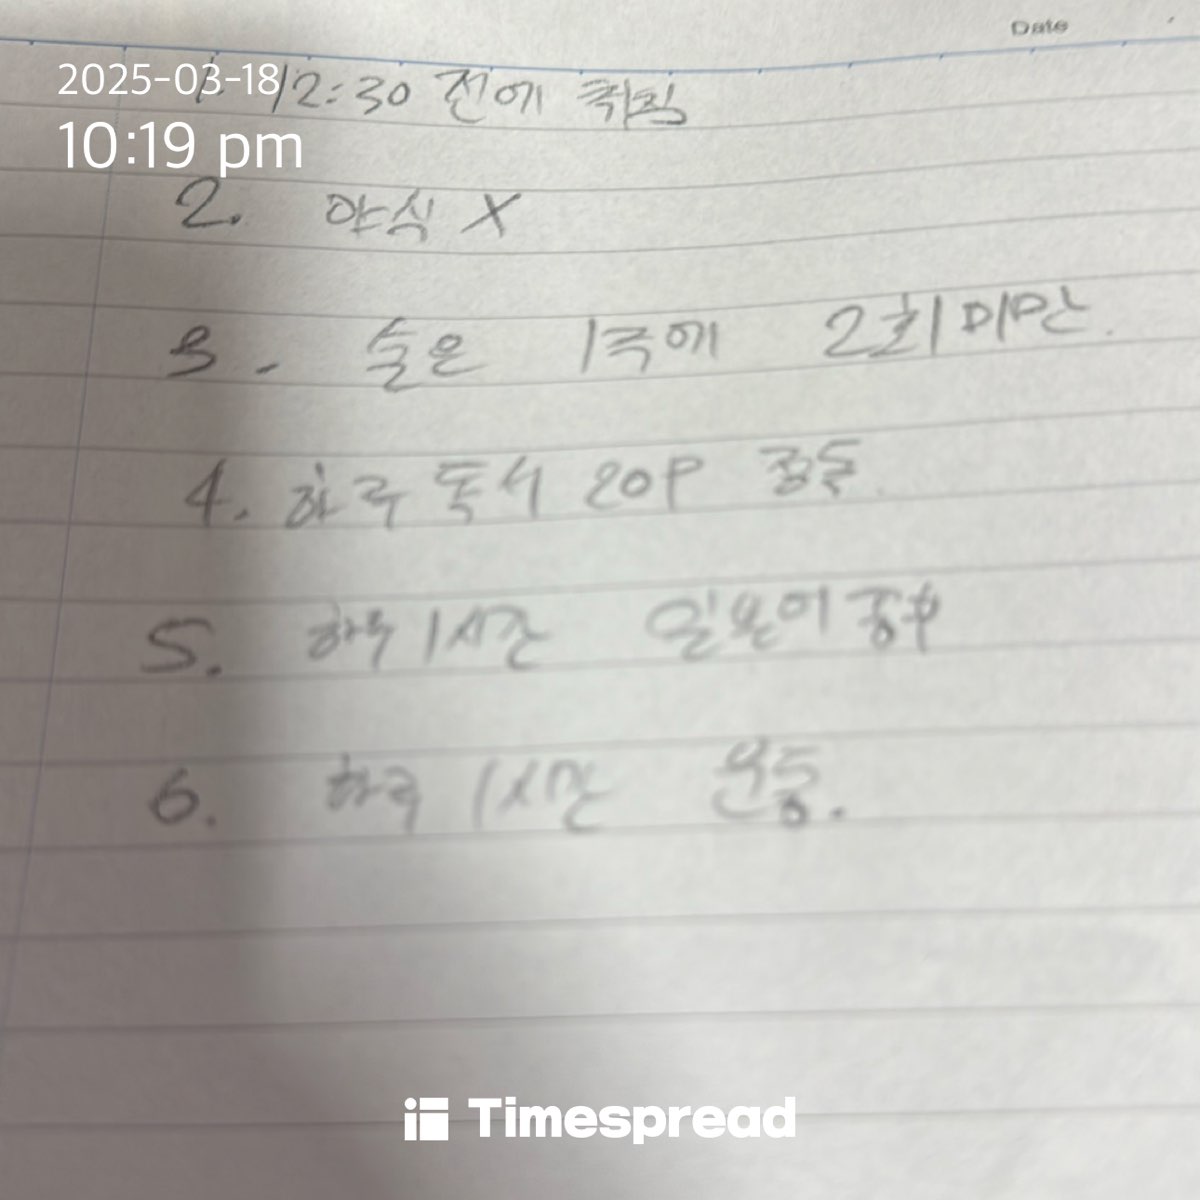 Date
2025-03-18
1. 12:30 전에 취침
10:19 pm
2. 야식 X
3. 술은 1주에 2회 미만.
4. 하루 독서 20P
5. 하루 1시간 일본어 공부
6. 하루 1시간 운동.
Timespread